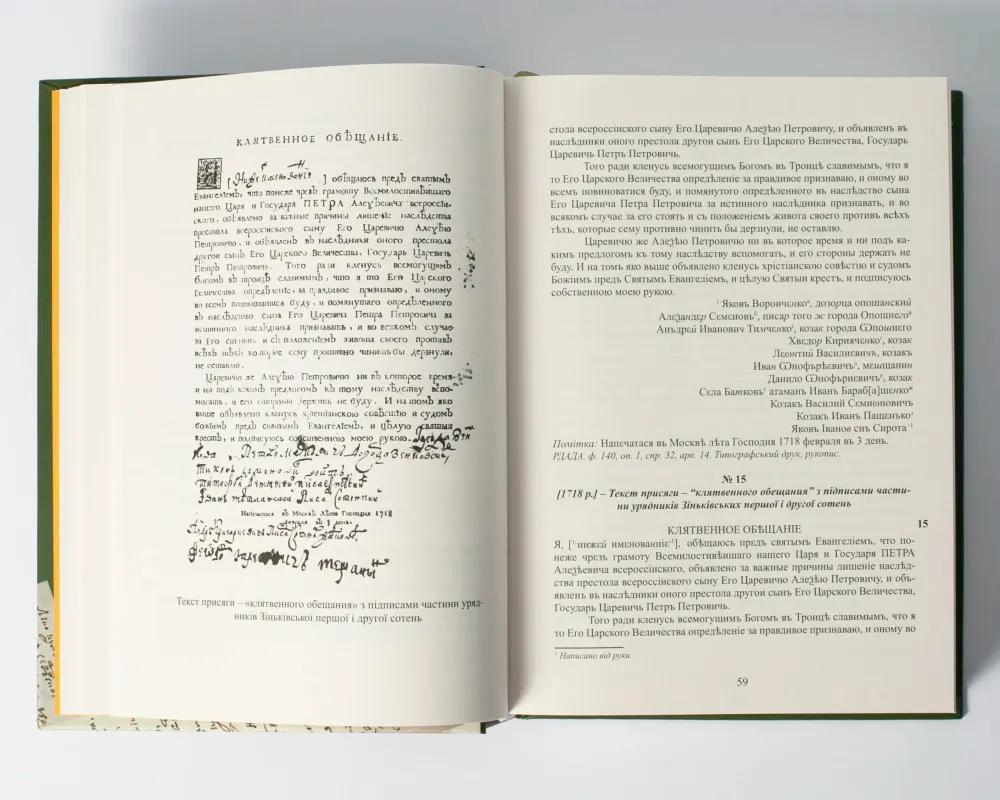 КЛЯТВЕННОЕ ОБѢЩАНІЕ.
обѣщаюсь предъ святымъ
Евангелїемъ, что понеже чрезъ грамоту Всемилостивѣйшаго
нашего Царя и Государя ПЕТРА Алеѯѣевича всероссїи-
ского, объявлено за важные причины лишенїе наслѣдства
престола всероссїиского сыну Его Царевичю Алеѯѣю
Петровичю, и объявленъ въ наслѣдники оного престола
другои сынъ Его Царского Величества, Государь Царевичь
Петръ Петровичь. Того ради кленусь всемогущимъ
богомъ въ троицѣ славимымъ, что я то Его Царского
Величества опредѣленїе за правдивое признаваю, и оному
во всемъ повиноватися буду, и помянутаго опредѣленного
въ наслѣдство сына Его Царевича Петра Петровича за
истинного наслѣдника признавать, и во всякомъ случае
за Его стоять и съ положенїемъ живота своего противъ
всѣхъ тѣхъ которые сему противно чинить бы дерзнули,
не оставлю.
Царевичю же Алеѯѣю Петровичю ни въ которое время
и ни подъ какимъ предлогомъ къ тому наслѣдству вспо-
могать, и его стороны держать не буду. И на томъ яко
выше объявлено кленусь хрїстїанскою совѣстїю и судомъ
божїимъ предъ святымъ Евангелїемъ, и цѣлую святыи
крестъ, и подписуюсь собственною моею рукою.
Напечатася въ Москвѣ лѣта Господня 1718
февраля въ 3 день.
Текст присяги – «клятвенного обещания» з підписами частини уряд-
ників Зіньківської першої і другої сотень
стола всероссїиского сыну Его Царевичю Алеѯѣю Петровичу, и объявлен въ
наслѣдники оного престола другои сынъ Его Царского Величества, Государь
Царевичь Петръ Петровичь.
Того ради кленусь всемогущимъ Богомъ въ Троицѣ славимымъ, что я
то Его Царского Величества опредѣленїе за правдивое признаваю, и оному во
всемъ повиноватися буду, и помянутого опредѣленного въ наслѣдство сына
Его Царевича Петра Петровича за истинного наслѣдника признавать, и во
всякомъ случае за его стоять и съ положенїемъ живота своего противъ всѣхъ
тѣхъ, которые сему противно чинить бы дерзнули, не оставлю.
Царевичю же Алеѯѣю Петровичю ни въ которое время и ни подъ ка-
кимъ предлогомъ къ тому наслѣдству вспомогать, и его стороны держать не
буду. И на томъ яко выше объявлено кленусь хрістїанскою совѣстїю и судомъ
Божїимъ предъ Святымъ Евангелїемъ, и цѣлую Святыи крестъ, и подписуюсь
собственною моею рукою.
¹ Яковъ Воронченко, дозорца опошанский
Алеѯандєр Семєновъ, писар того ж города Опошнего
Анъдрей Иванович Тимченко, козак города Ѡпошнего
Хведор Кирияченко, козак
Леонтий Василиєвичъ, козакъ
Иван Ѡнофърѣєвичъ, мєщанин
Данило Ѡнофъриєвичъ, козак
Сєла Баѧковъ атаманъ Иванъ Бараб[а]щенко
Козакъ Василий Сєминовичъ
Козакъ Иванъ Пащенько
Яковъ Іванов снъ Сирота ¹
Помітка: Напечатася въ Москвѣ лѣта Господня 1718 февраля въ 3 день.
РДАДА. ф. 140, оп. 1, спр. 32, арк. 14. Типографський друк, рукопис.
№ 15
[1718 р.] – Текст присяги – “клятвенного обещания” з підписами части-
ни урядників Зіньківських першої і другої сотень
15
КЛЯТВЕННОЕ ОБѢЩАНІЕ
Я, [¹ нижєй имєнованніє ¹], обѣщаюсь предъ святымъ Евангелїемъ, что по-
неже чрезъ грамоту Всемилостивѣйшаго нашего Царя и Государя ПЕТРА
Алеѯѣевича всероссїиского, объявлено за важные причины лишенїе наслѣд-
ства престола всероссїиского сыну Его Царевичю Алеѯѣю Петровичу, и объ-
явленъ въ наслѣдники оного престола другои сынъ Его Царского Величества,
Государь Царевичь Петръ Петровичь.
Того ради кленусь всемогущимъ Богомъ въ Троицѣ славимымъ, что я
то Его Царского Величества опредѣленїе за правдивое признаваю, и оному во
¹ Написано від руки.
59